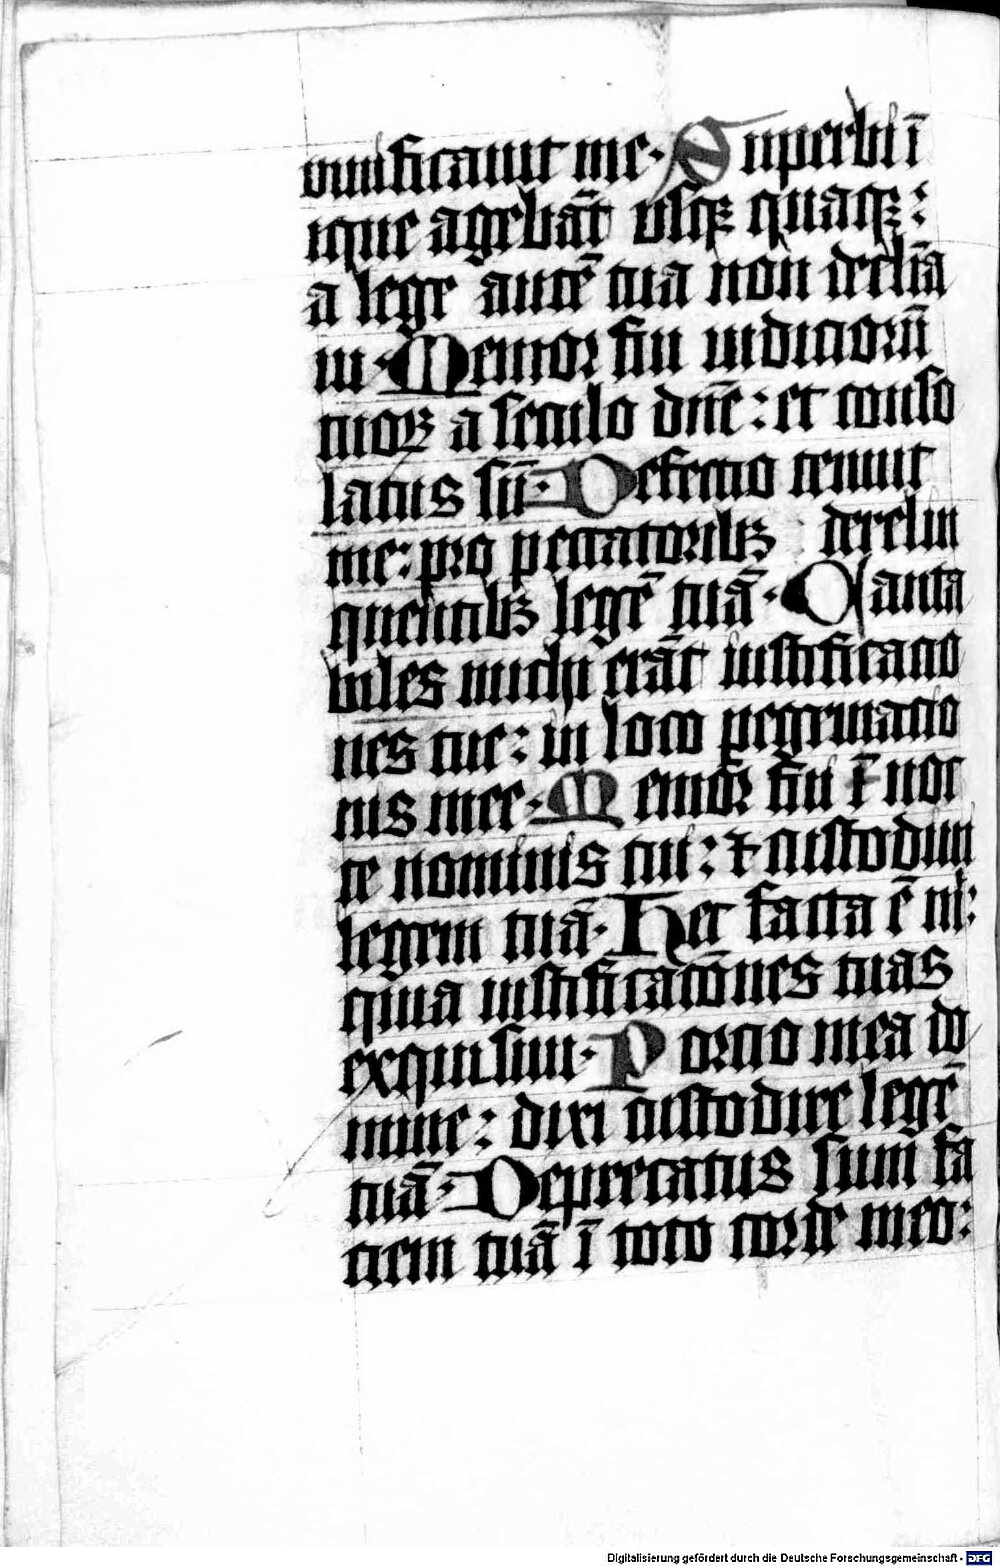 viuificauit me. Superbi ī
ique agebāt vsqꝫ quaqꝫ:
a lege autē tua non declīa
ui. Memor fui iudicioruū
tuoꝝ a seculo dn̄e: et conso
latus sū. Defectio tenuit
me: pro peccatoribꝫ derelin
quentibꝫ legē tuā. Canta
biles michi erāt iustificatio
nes tue: in loco pegrinatio
nis mee. Memor fui ī noc
te nominis tui: ⁊ custodiui
legem tuā. Hec facta ē m̄:
quia iustificatōnes tuas
exquisiui. Porcio mea do
mine: dixi custodire legē
tuā. Deprecatus sum fa
ciem tuā ī toto corde meo:
Digitalisierung gefördert durch die Deutsche Forschungsgemeinschaft - DFG